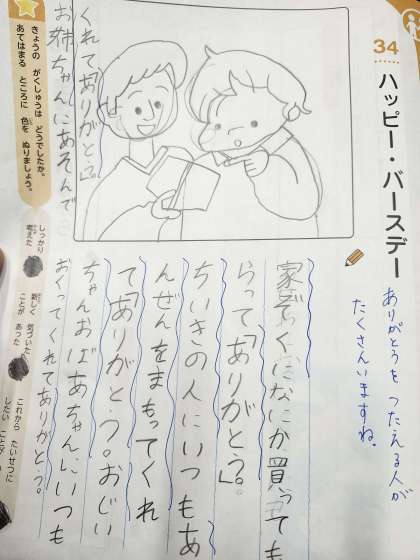 34
ハッピー・バースデー
ありがとうを つたえる人が
たくさんいますね。
家ぞくになにか買っても
らって「ありがとう。」
ちいきの人にいつもあ
んぜんをまもってくれ
て「ありがとう。おじい
ちゃんおばあちゃんにいつも
おくってくれてありがとう。
お姉ちゃんにあそんで
くれてありがとう」
きょうの がくしゅうは どうでしたか。
あてはまる ところに 色を ぬりましょう。
しっかり
考えた
新しく 気づいた
ことが あった
これから たいせつに
したい